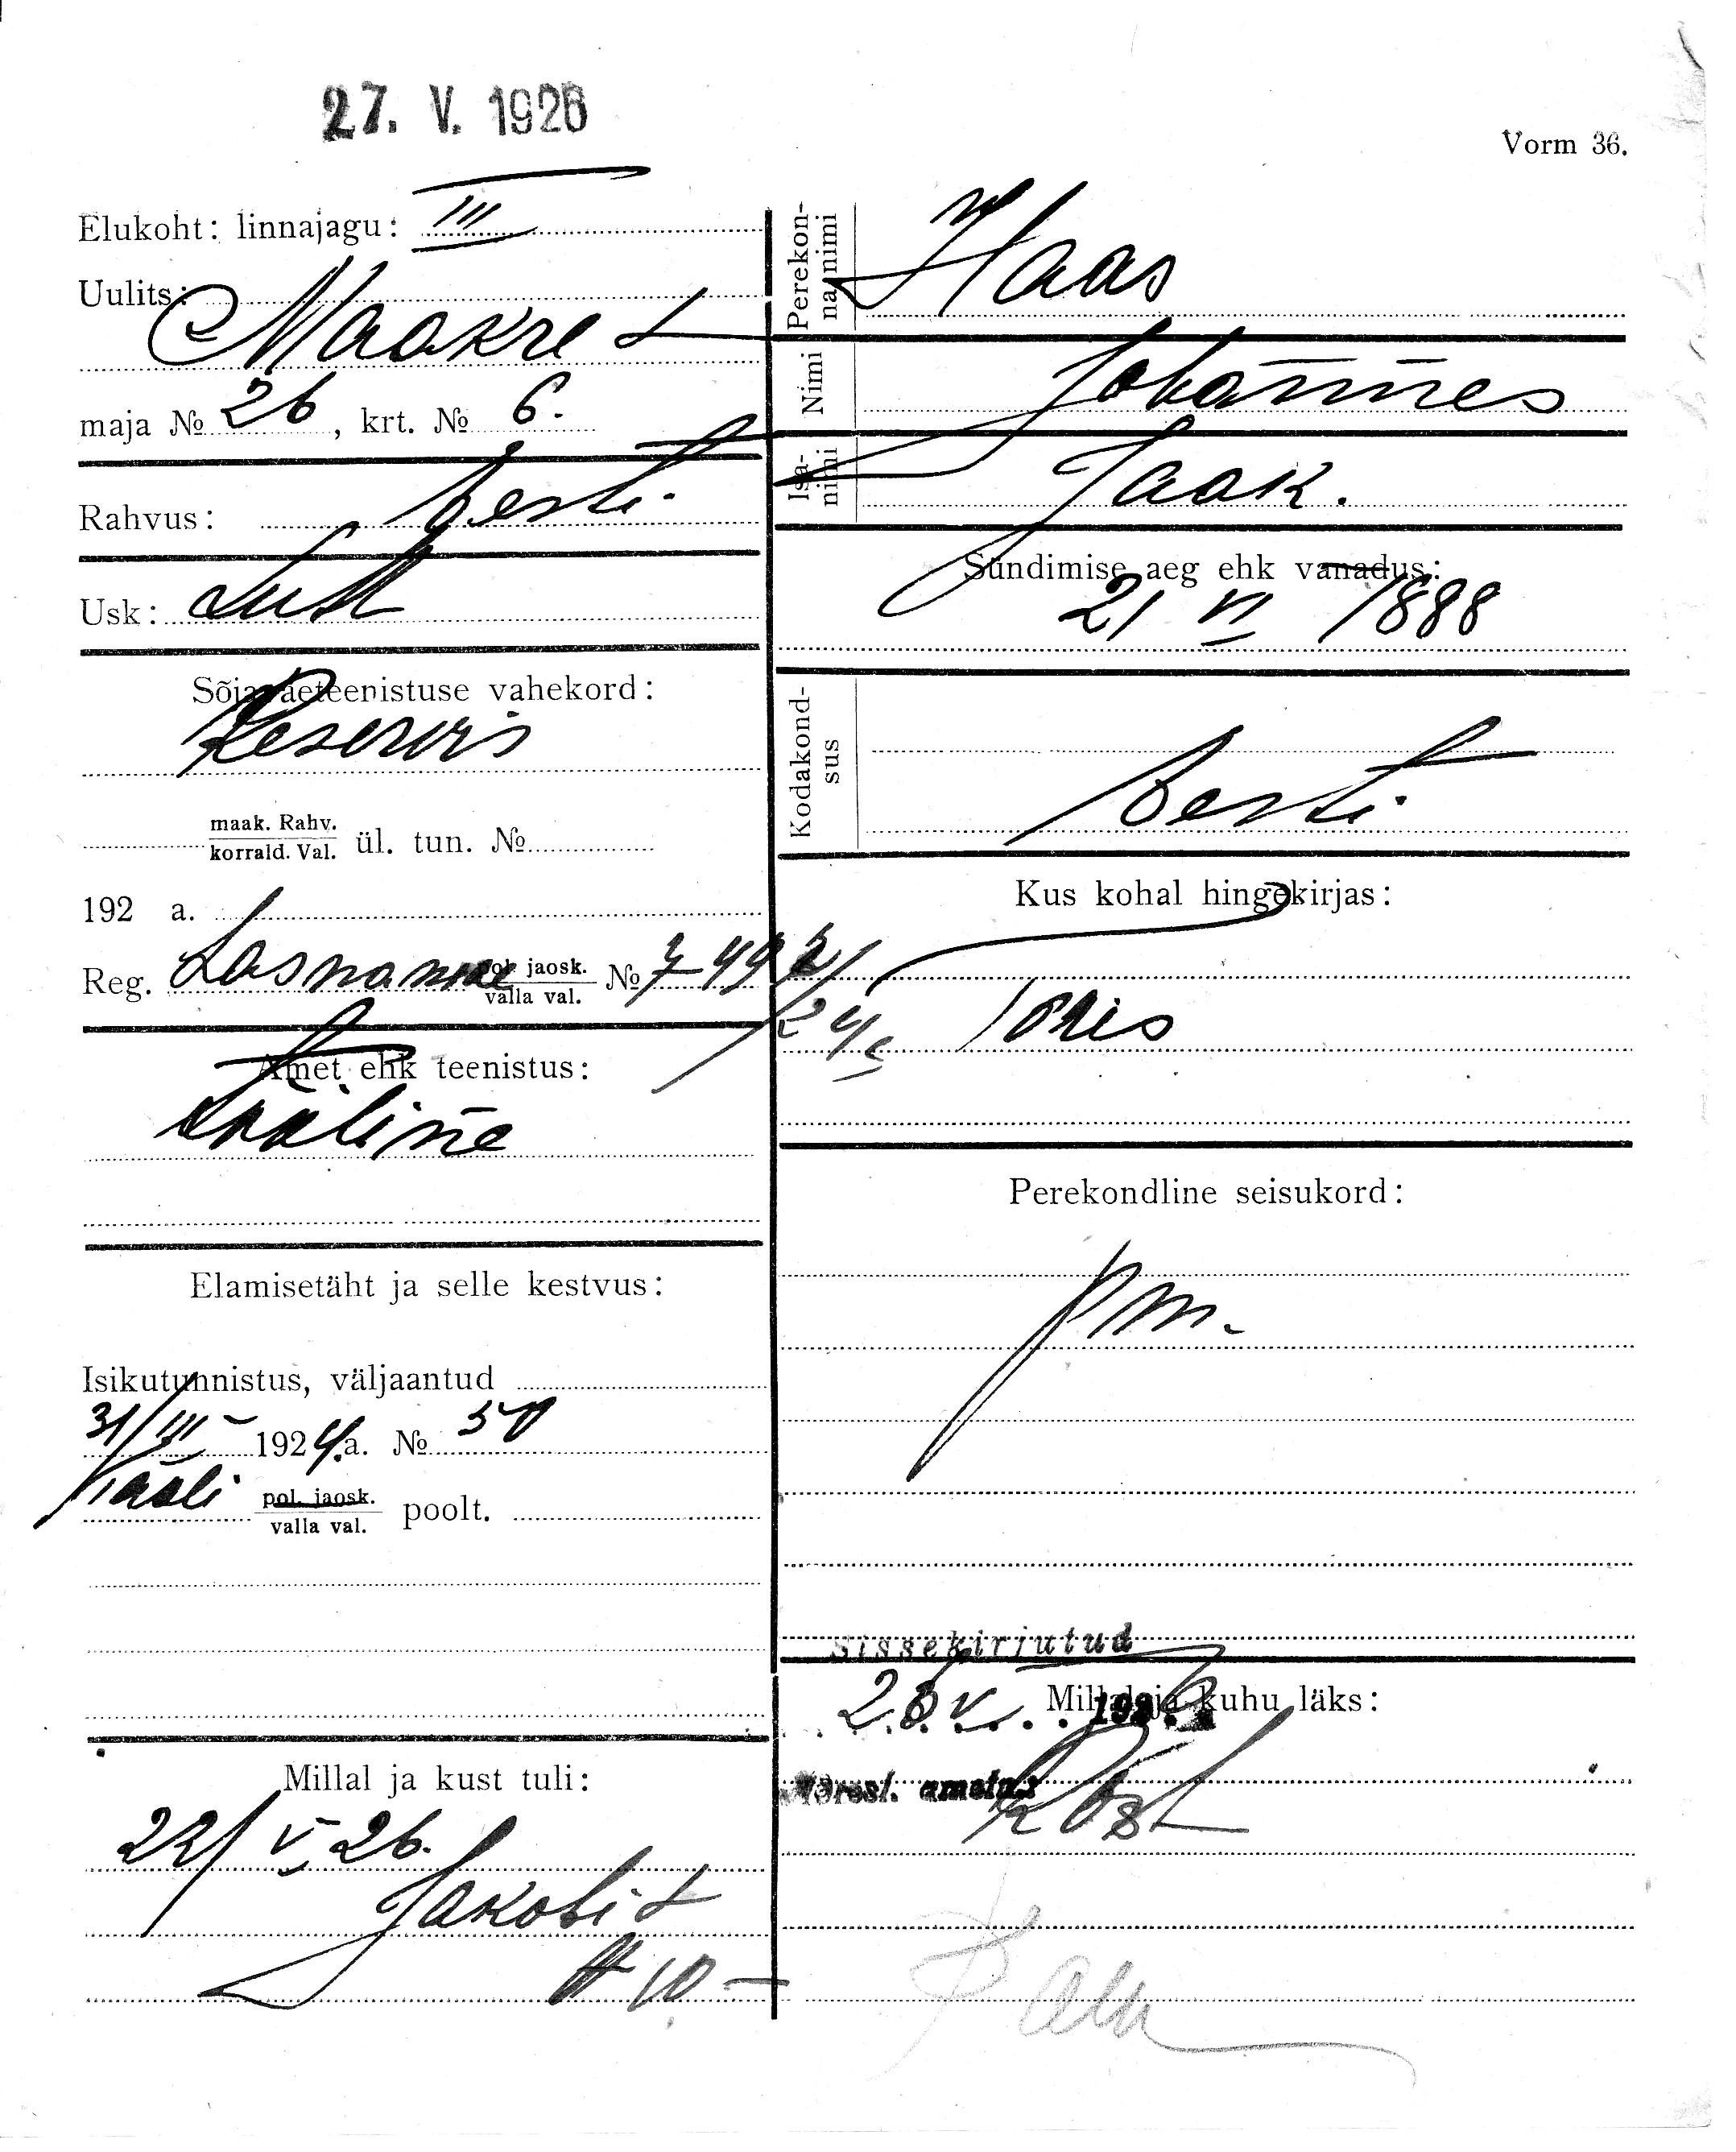 27. V. 1926
Vorm 36.
Elukoht: linnajagu: III
Uulits:
Maakre t
maja № 26, krt. № 6.
Rahvus: Eesti
Usk: Luth
Sõjaväeteenistuse vahekord:
Reservis
maak. Rahv.
korrald. Val. ül. tun. №
192 a.
Reg. Lasnamäe pol. jaosk.
valla val. №
Amet ehk teenistus:
Tööline
Elamisetäht ja selle kestvus:
Isikutunnistus, väljaantud
31/III 1924. a. № 50
pol. jaosk.
valla val. poolt.
Millal ja kust tuli:
22/V 26.
Jakobi t
№ 10 –
Perekonnanimi
Haas
Nimi
Johannes
Isanimi
Jaak.
Sündimise aeg ehk vanadus:
21 VI 1888
Kodakondsus
Eesti
Kus kohal hingekirjas:
Toris
Perekondline seisukord:
pm.
Sissekirjutud
Millal ja kuhu läks: